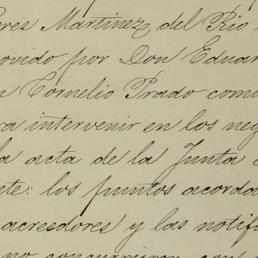 eres Martinez del Rio
ovido por Don Eduar
n Cornelio Prado com
ra intervenir en los neg
la acta de la Junta
te: los puntos acorda
acreedores y las notifi
no concurrieron con